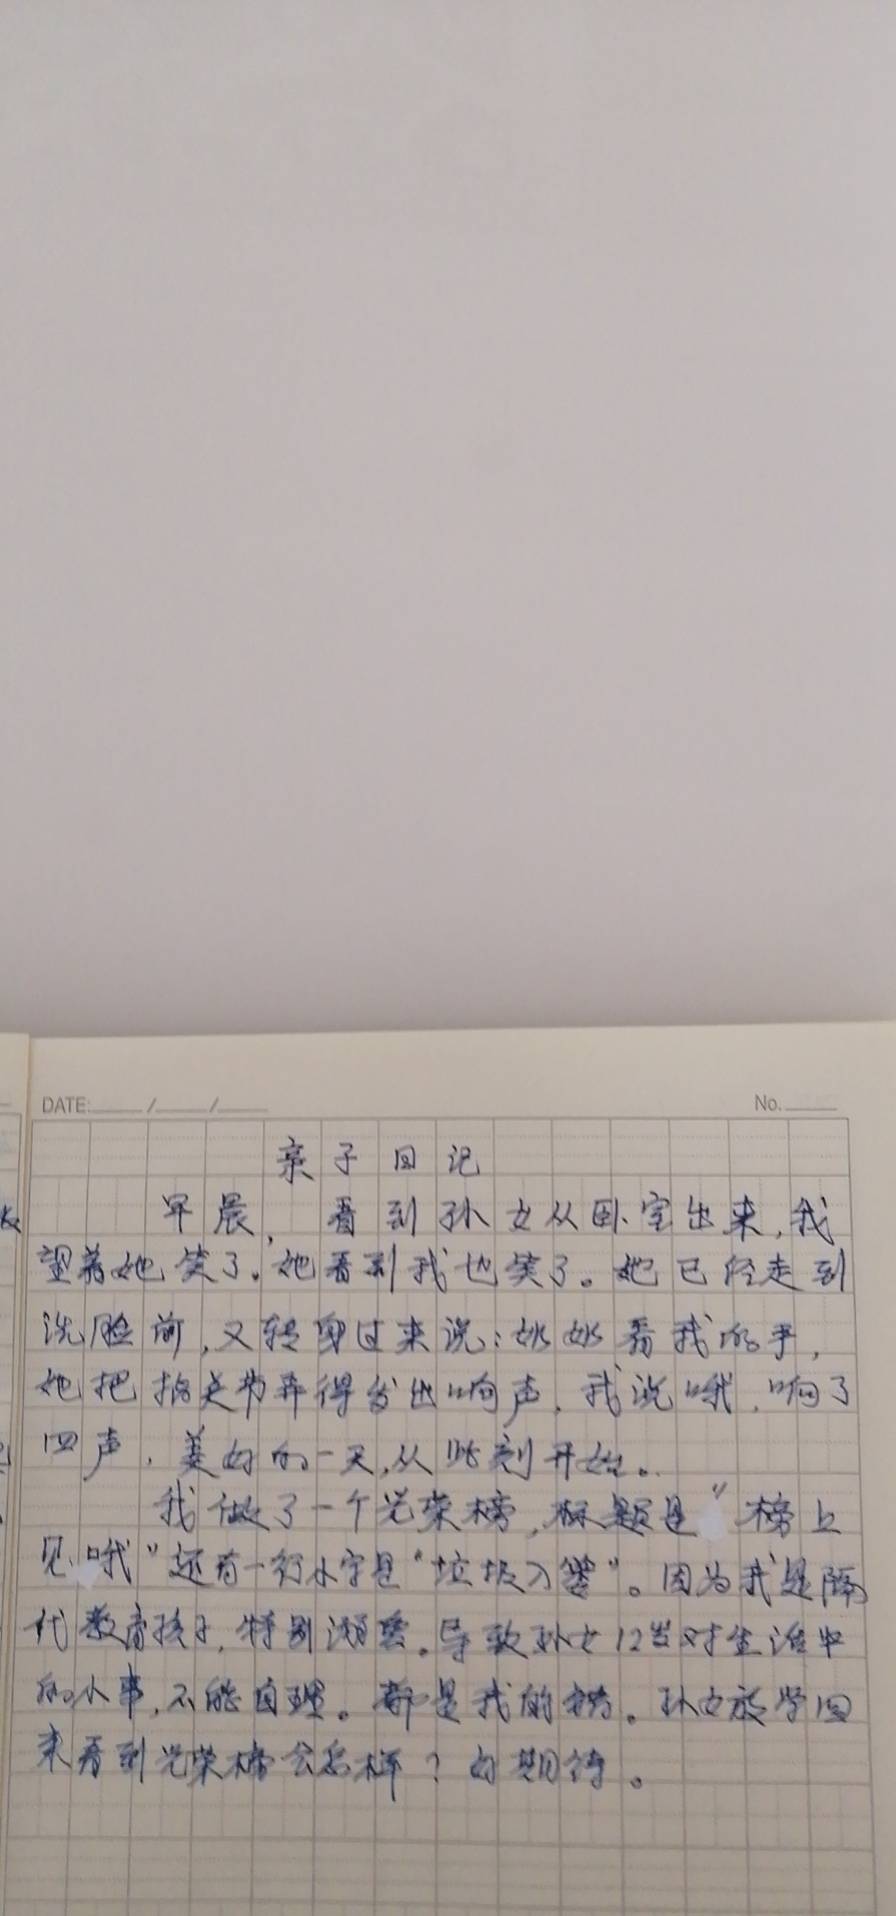 DATE: / /
No.
亲子日记
早晨,看到孙女从卧室出来,我
望着她笑了。她看到我也笑了。她已经走到
洗脸前,又转身过来说:姥姥看我的手,
她把指关节弄得发出响声,我说哦,响了
四声,美好的一天,从此刻开始。
我做了一个光荣榜,标题是“榜上
见哦”还有一行小字是“垃圾入篓”。因为我是隔
代教育孩子,特别溺爱。导致孙女12岁对生活中
的小事,不能自理。都是我的错。孙女放学回
来看到光荣榜会怎样?好期待。